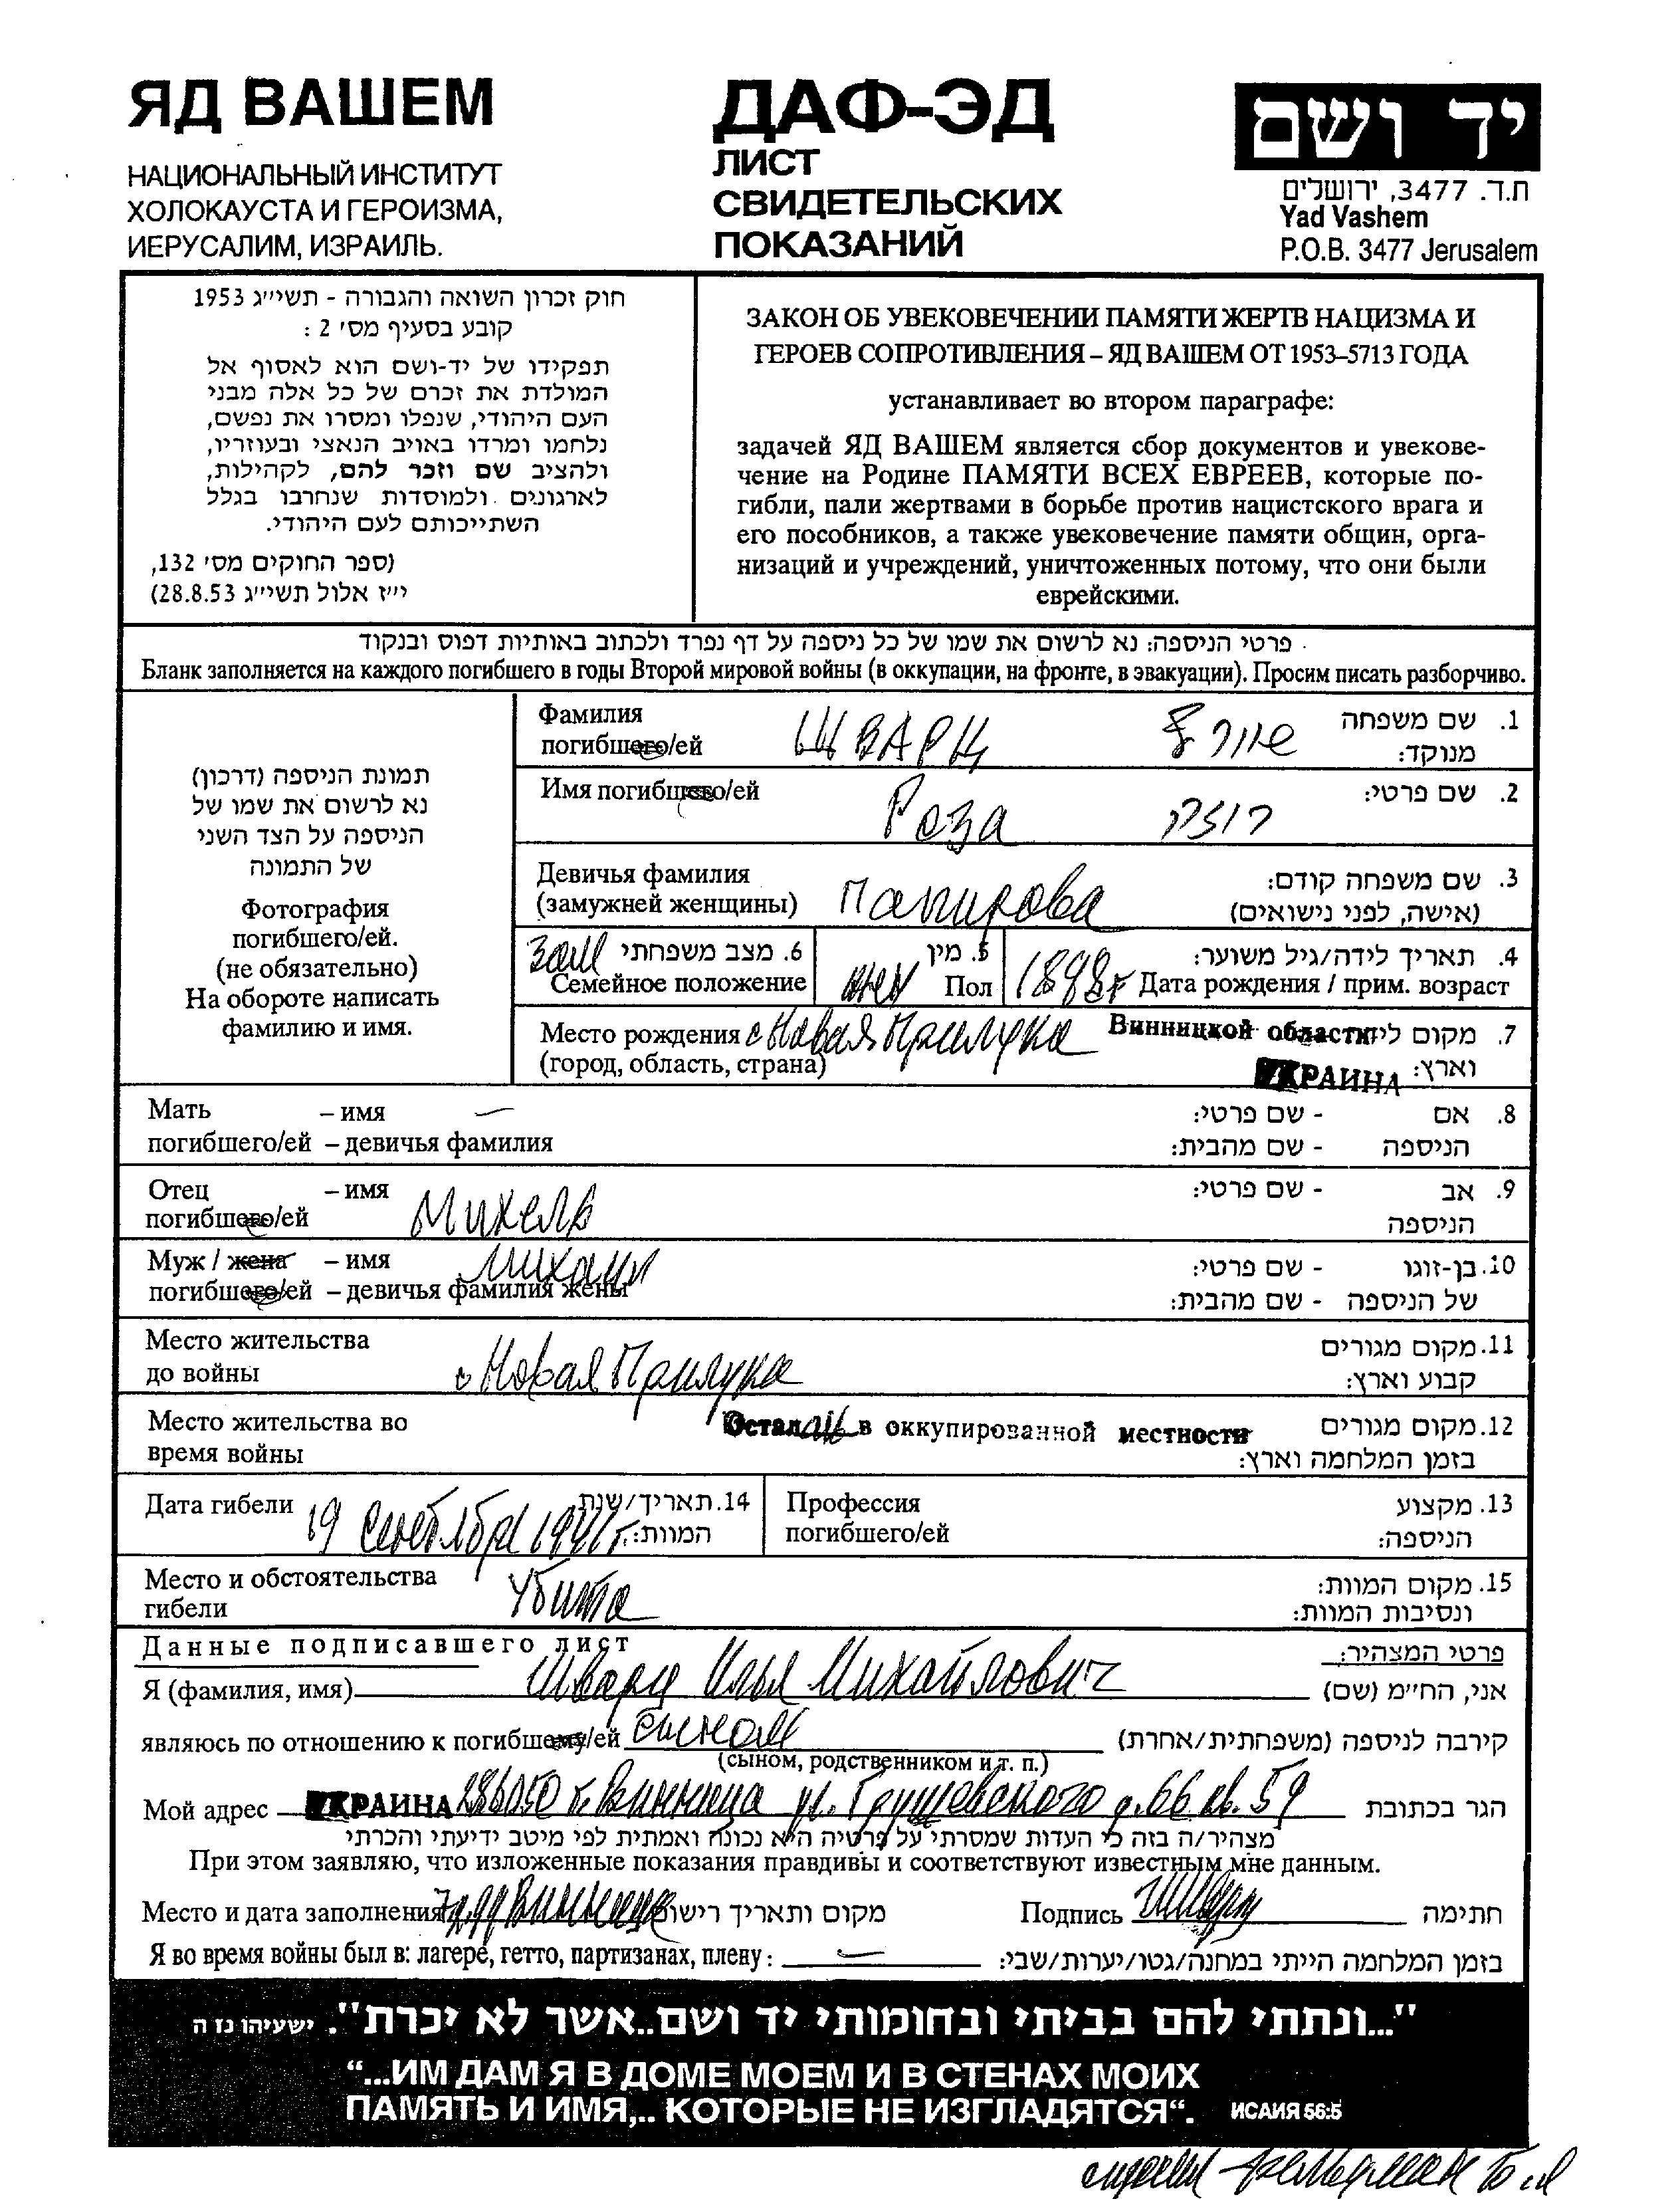 ЯД ВАШЕМ
НАЦИОНАЛЬНЫЙ ИНСТИТУТ
ХОЛОКАУСТА И ГЕРОИЗМА,
ИЕРУСАЛИМ, ИЗРАИЛЬ.
ДАФ-ЭД
ЛИСТ
СВИДЕТЕЛЬСКИХ
ПОКАЗАНИЙ
יד ושם
ת.ד. 3477, ירושלים
Yad Vashem
P.O.B. 3477 Jerusalem
חוק זכרון השואה והגבורה - תשי״ג 1953
קובע בסעיף מס׳ 2 :
תפקידו של יד-ושם הוא לאסוף אל
המולדת את זכרם של כל אלה מבני
העם היהודי, שנפלו ומסרו את נפשם,
נלחמו ומרדו באויב הנאצי ובעוזריו,
ולהציב שם וזכר להם, לקהילות,
לארגונים ולמוסדות שנחרבו בגלל
השתייכותם לעם היהודי.
(ספר החוקים מס׳ 132,
י״ז אלול תשי״ג 28.8.53)
ЗАКОН ОБ УВЕКОВЕЧЕНИИ ПАМЯТИ ЖЕРТВ НАЦИЗМА И
ГЕРОЕВ СОПРОТИВЛЕНИЯ – ЯД ВАШЕМ ОТ 1953–5713 ГОДА
устанавливает во втором параграфе:
задачей ЯД ВАШЕМ является сбор документов и увекове-
чение на Родине ПАМЯТИ ВСЕХ ЕВРЕЕВ, которые по-
гибли, пали жертвами в борьбе против нацистского врага и
его пособников, а также увековечение памяти общин, орга-
низаций и учреждений, уничтоженных потому, что они были
еврейскими.
פרטי הניספה: נא לרשום את שמו של כל ניספה על דף נפרד ולכתוב באותיות דפוס ובנקוד
Бланк заполняется на каждого погибшего в годы Второй мировой войны (в оккупации, на фронте, в эвакуации). Просим писать разборчиво.
תמונת הניספה (דרכון)
נא לרשום את שמו של
הניספה על הצד השני
של התמונה
Фотография
погибшего/ей.
(не обязательно)
На обороте написать
фамилию и имя.
Фамилия שם משפחה .1
погибшего/ей ШВАРЦ שוורץ מנוקד:
Имя погибшего/ей Роза רוזה שם פרטי: .2
Девичья фамилия שם משפחה קודם: .3
(замужней женщины) Папирова (אישה, לפני נישואים)
зам 6. מצב משפחתי 5. מין 4. תאריך לידה/גיל משוער:
Семейное положение жен Пол 1898г Дата рождения / прим. возраст
Место рождения с Новая Прилука Винницкой области מקום .7
(город, область, страна) УКРАИНА וארץ:
Мать – имя – אם - שם פרטי: .8
погибшего/ей – девичья фамилия הניספה - שם מהבית:
Отец – имя אב - שם פרטי: .9
погибшего/ей Михель הניספה
Муж / жена – имя Михаил בן-זוגו - שם פרטי: .10
погибшего/ей – девичья фамилия жены של הניספה - שם מהבית:
Место жительства מקום מגורים .11
до войны с Новая Прилука קבוע וארץ:
Место жительства во Осталась в оккупированной местности מקום מגורים .12
время войны בזמן המלחמה וארץ:
Дата гибели 19 сентября 14. תאריך/שנת Профессия 13. מקצוע
המוות: погибшего/ей הניספה:
Место и обстоятельства 15. מקום המוות:
гибели Убита ונסיבות המוות:
Данные подписавшего лист פרטי המצהיר:
Я (фамилия, имя) Шварц Илья Михайлович אני, הח״מ (שם)
являюсь по отношению к погибшему/ей сыном קירבה לניספה (משפחתית/אחרת)
(сыном, родственником и т. п.)
Мой адрес УКРАИНА 286050 г. Винница ул. Грушевского д. 66 кв. 59 הגר בכתובת
מצהיר/ה בזה כי העדות שמסרתי על פרטיה היא נכונה ואמתית לפי מיטב ידיעתי והכרתי
При этом заявляю, что изложенные показания правдивы и соответствуют известным мне данным.
Место и дата заполнения Винница מקום ותאריך רישום Подпись Шварц חתימה
Я во время войны был в: лагере, гетто, партизанах, плену: – בזמן המלחמה הייתי במחנה/גטו/יערות/שבי:
"...ונתתי להם בביתי ובחומותי יד ושם..אשר לא יכרת". ישעיהו נז ה
“...ИМ ДАМ Я В ДОМЕ МОЕМ И В СТЕНАХ МОИХ
ПАМЯТЬ И ИМЯ,.. КОТОРЫЕ НЕ ИЗГЛАДЯТСЯ“. ИСАИЯ 56:5